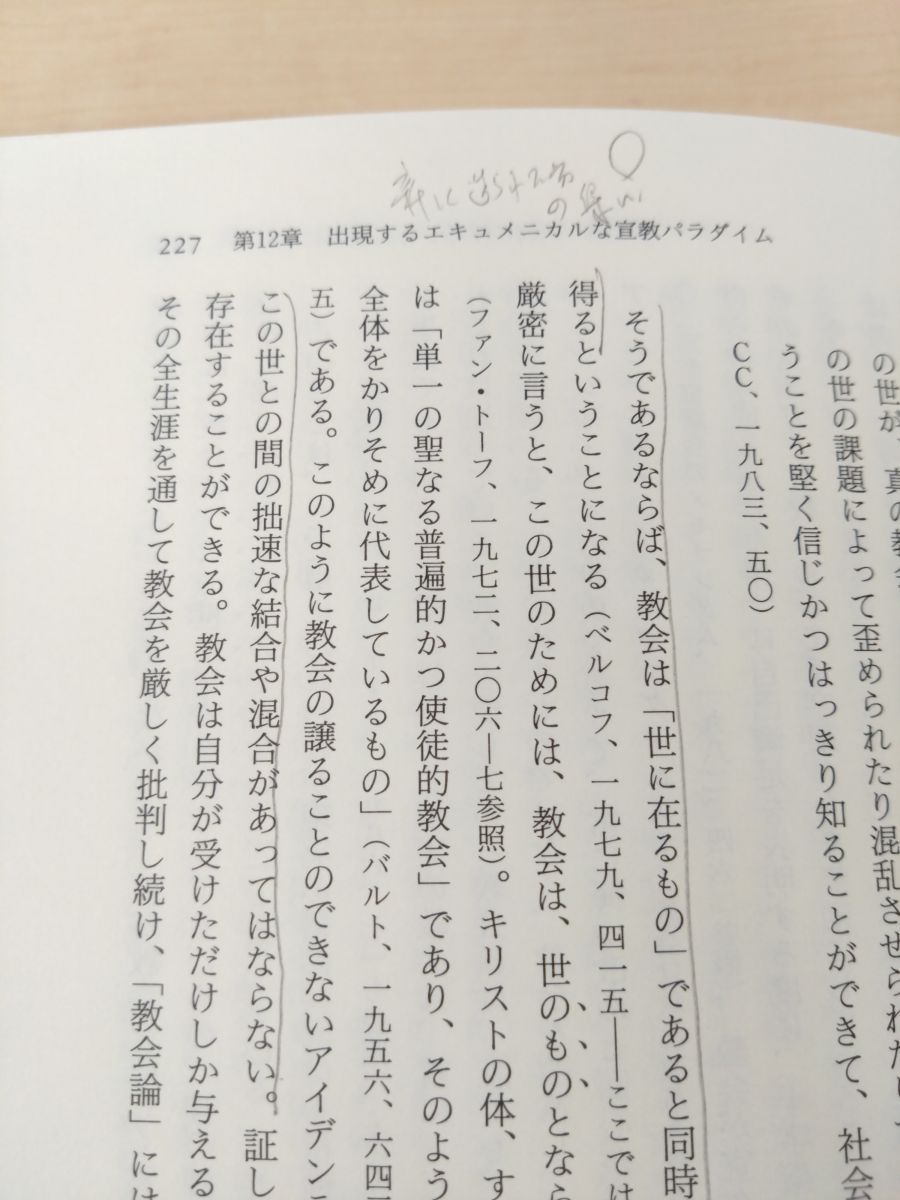 227 第12章 出現するエキュメニカルな宣教パラダイム
の世が、真の教会
の世の課題によって歪められたり混乱させられたり
うことを堅く信じかつはっきり知ることができて、社会
CC、一九八三、五〇)
そうであるならば、教会は「世に在るもの」であると同時
得るということになる(ベルコフ、一九七九、四一五――ここでは
厳密に言うと、この世のためには、教会は、世のものとなら
(ファン・トーフ、一九七二、二〇六―七参照)。キリストの体、す
は「単一の聖なる普遍的かつ使徒的教会」であり、そのよう
全体をかりそめに代表しているもの」(バルト、一九五六、六四
五)である。このように教会の譲ることのできないアイデン
この世との間の拙速な結合や混合があってはならない。証し
存在することができる。教会は自分が受けただけしか与える
その全生涯を通して教会を厳しく批判し続け、「教会論」には